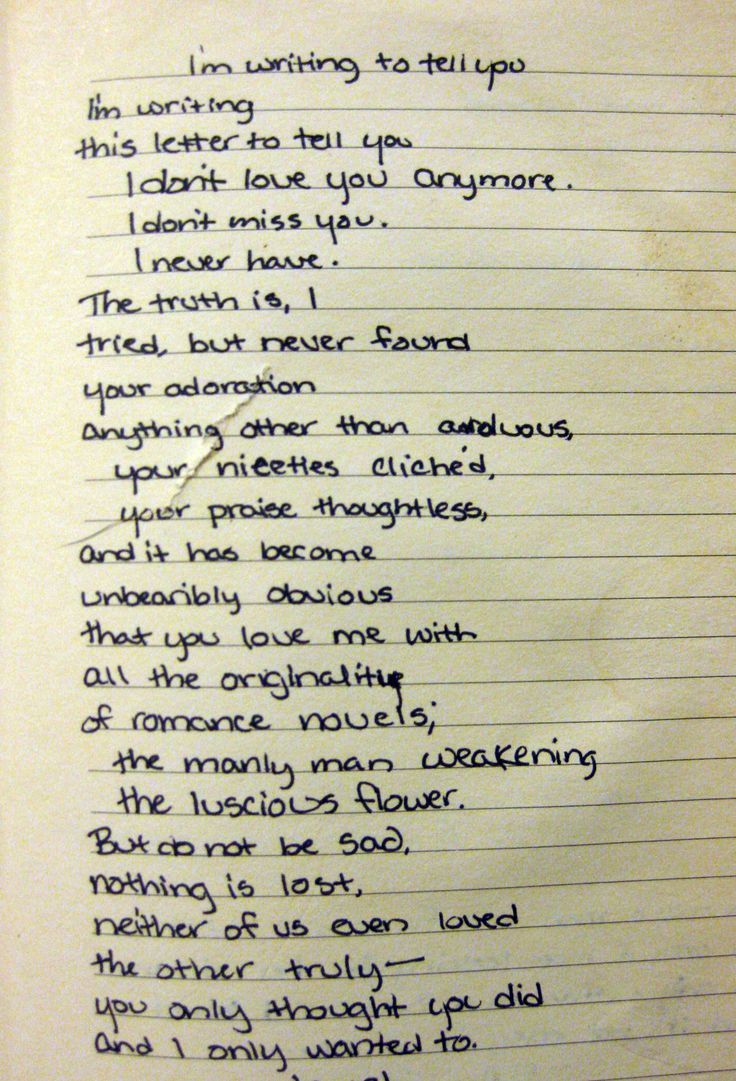 I'm writing to tell you
I'm writing
this letter to tell you
I don't love you anymore.
I don't miss you.
I never have.
The truth is, I
tried, but never found
your adoration
anything other than arduous,
your niceties clichéd,
your praise thoughtless,
and it has become
unbearibly obvious
that you love me with
all the originality
of romance novels;
the manly man weakening
the luscious flower.
But do not be sad,
nothing is lost,
neither of us even loved
the other truly—
you only thought you did
and I only wanted to.